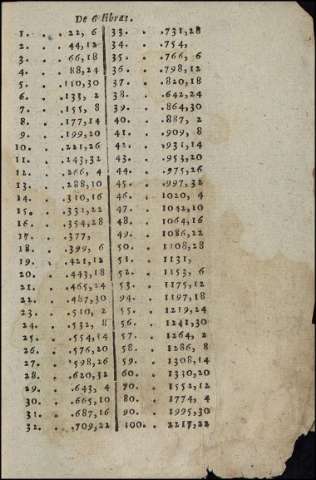 De 6 libras.
1. . . 22, 6 33. . .731,28
2. . . 44,12 34. . .754,
3. . . 66,18 35. . .766, 6
4. . . 88,24 36. . .798,12
5. . .110,30 37. . .820,18
6. . .133, 2 38. . .642,24
7. . .155, 8 39. . .864,30
8. . .177,14 40. . .887, 2
9. . .199,20 41. . .909, 8
10. . .221,26 42. . .931,14
11. . .243,32 43. . .953,20
12. . .266, 4 44. . .975,26
13. . .288,10 45. . .997,32
14. . .310,16 46. . 1020, 4
15. . .332,22 47. . 1042,10
16. . .354,28 48. . 1064,16
17. . .377, 49. . 1086,22
18. . .399, 6 50. . 1108,28
19. . .421,12 51. . 1131,
20. . .443,18 52. . 1153, 6
21. . .465,24 53. . 1175,12
22. . .487,30 94. . 1197,18
23. . .510, 2 55. . 1219,24
24. . .532, 8 56. . 1241,30
25. . .554,14 57. . 1264, 2
26. . .576,20 58. . 1286, 8
27. . .598,26 59. . 1308,14
28. . .620,32 60. . 1330,20
29. . .643, 4 70. . 1552,12
30. . .665,10 80. . 1774, 4
31. . .687,16 90. . 1995,30
32. . .709,22 100. . 2217,22